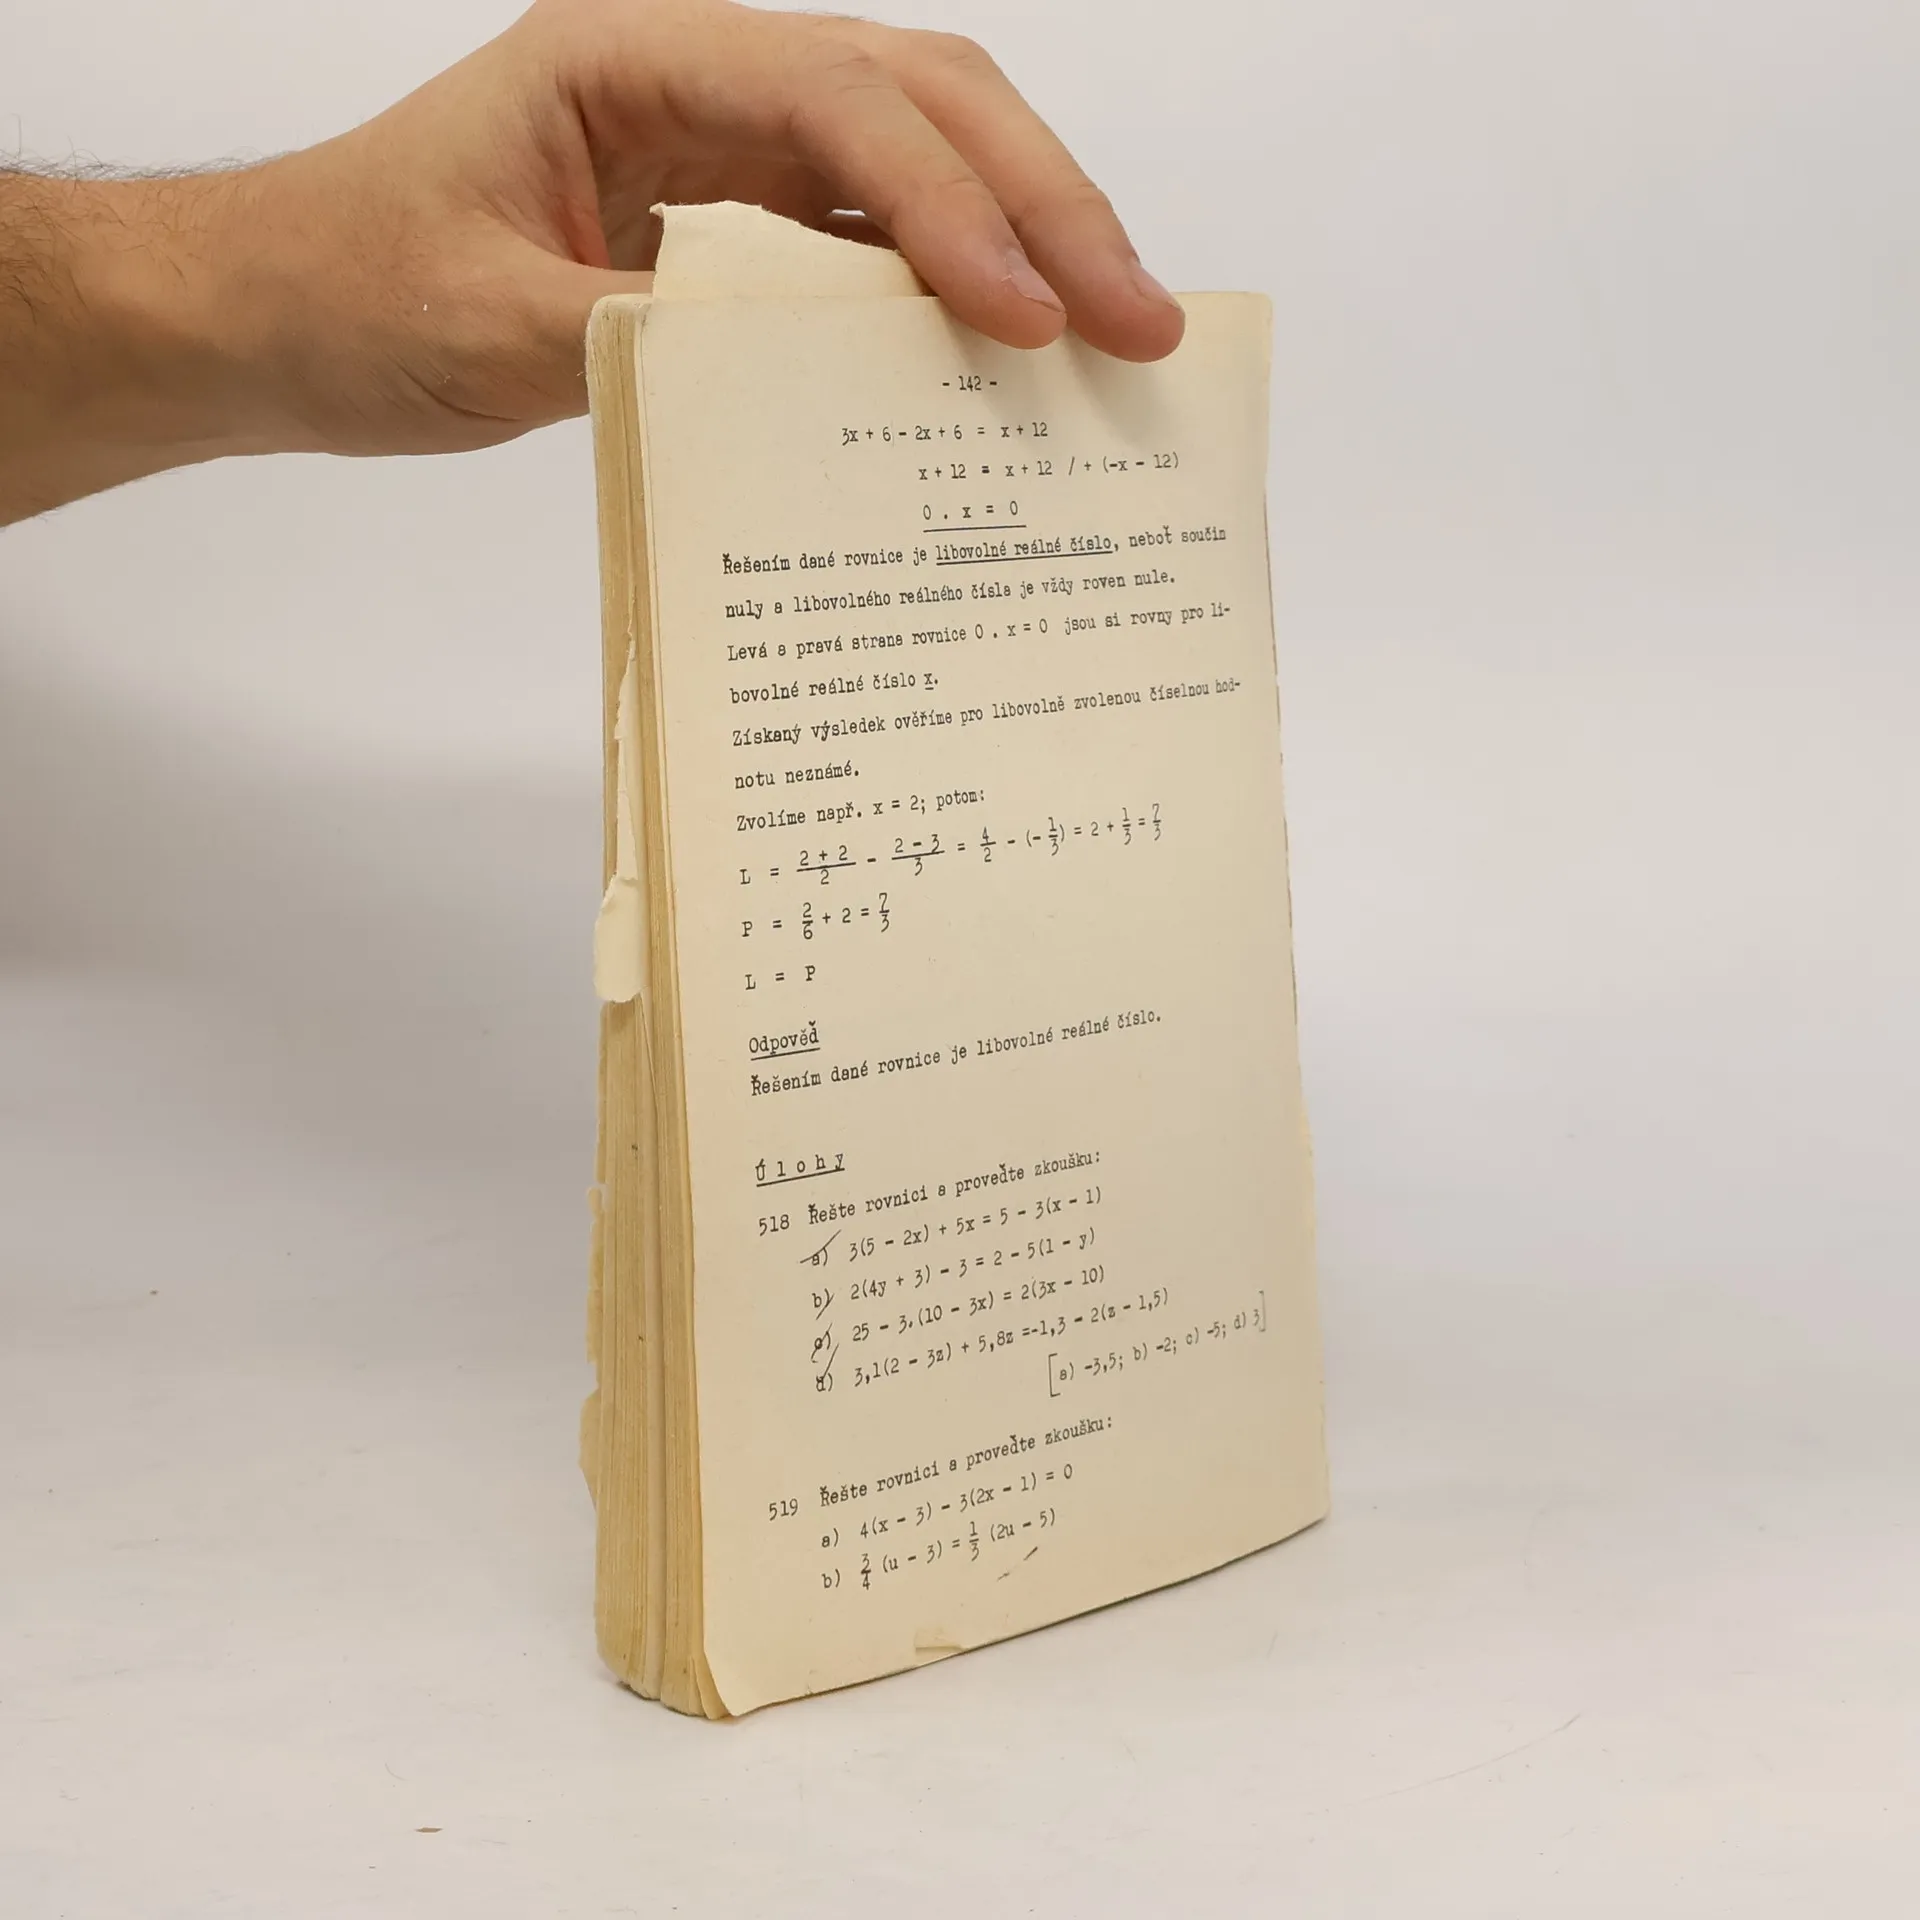 - 142 -
3x + 6 - 2x + 6 = x + 12
x + 12 = x + 12 / + (-x - 12)
0 . x = 0
Řešením dané rovnice je libovolné reálné číslo, neboť součin
nuly a libovolného reálného čísla je vždy roven nule.
Levá a pravá strana rovnice 0 . x = 0 jsou si rovny pro li-
bovolné reálné číslo x.
Získaný výsledek ověříme pro libovolně zvolenou číselnou hod-
notu neznámé.
Zvolíme např. x = 2; potom:
L = \frac{2 + 2}{2} - \frac{2 - 3}{3} = \frac{4}{2} - (-\frac{1}{3}) = 2 + \frac{1}{3} = \frac{7}{3}
P = \frac{2}{6} + 2 = \frac{7}{3}
L = P
Odpověď
Řešením dané rovnice je libovolné reálné číslo.
Úlohy
518 Řešte rovnici a proveďte zkoušku:
a) 3(5 - 2x) + 5x = 5 - 3(x - 1)
b) 2(4y + 3) - 3 = 2 - 5(1 - y)
c) 25 - 3.(10 - 3x) = 2(3x - 10)
d) 3,1(2 - 3z) + 5,8z =-1,3 - 2(z - 1,5)
[a) -3,5; b) -2; c) -5; d) 3]
519 Řešte rovnici a proveďte zkoušku:
a) 4(x - 3) - 3(2x - 1) = 0
b) \frac{3}{4} (u - 3) = \frac{1}{3} (2u - 5)